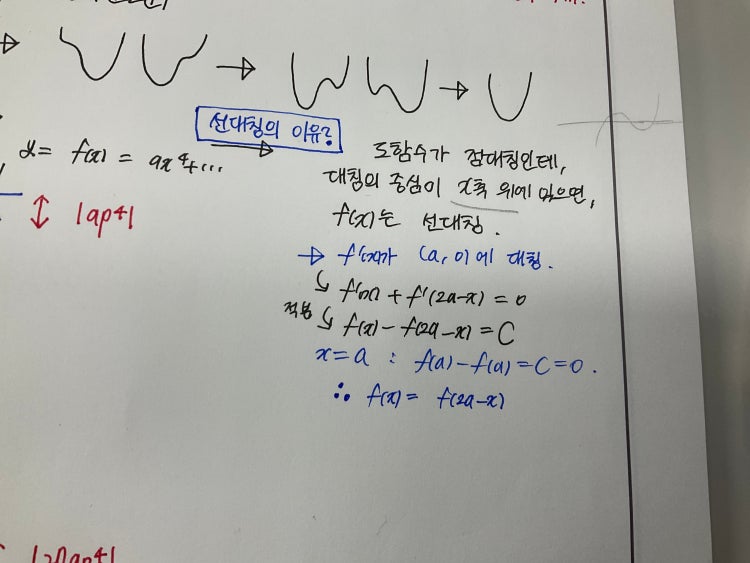 선대칭의 이유?
y = f(x) = ax⁴+...
|ap⁴|
도함수가 점대칭인데,
대칭의 중심이 x축 위에 있으면,
f(x)는 선대칭.
→ f'(x)가 (a, 0)에 대칭.
f'(x) + f'(2a-x) = 0
적분 f(x) - f(2a-x) = C
x = a : f(a) - f(a) = C = 0.
∴ f(x) = f(2a-x)